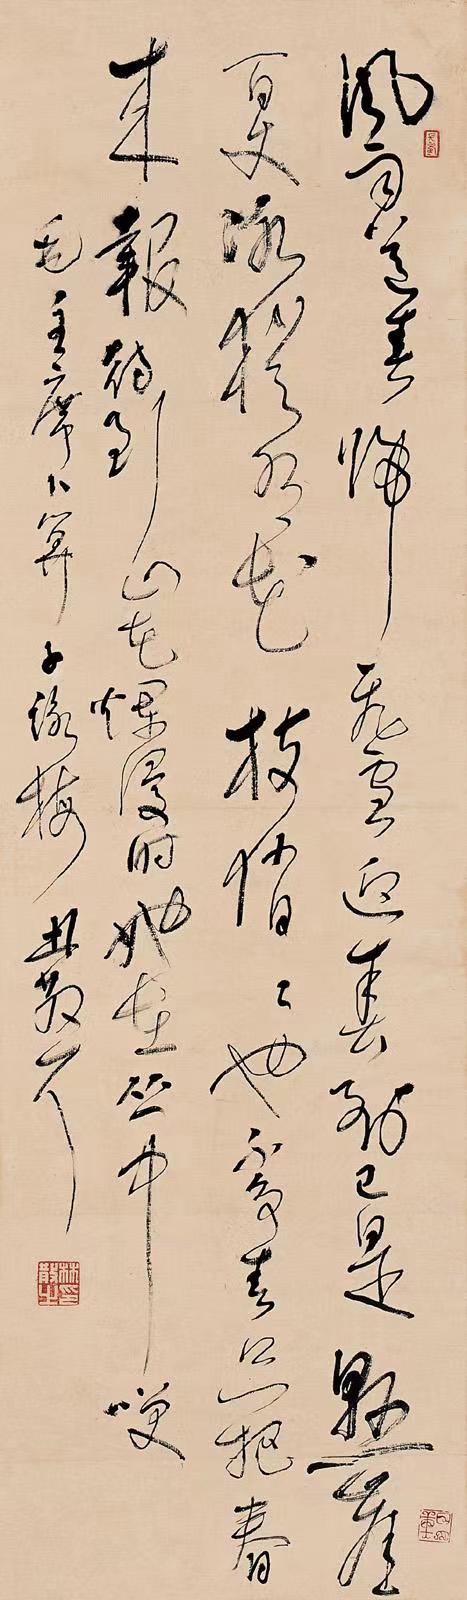 風雨送春歸飛雪迎春到已是懸崖
百丈冰猶有花枝俏〻也不争春只把春
来報待到山花爛漫时她在丛中咲
毛主席卜算子詠梅 林散耳
林散之印